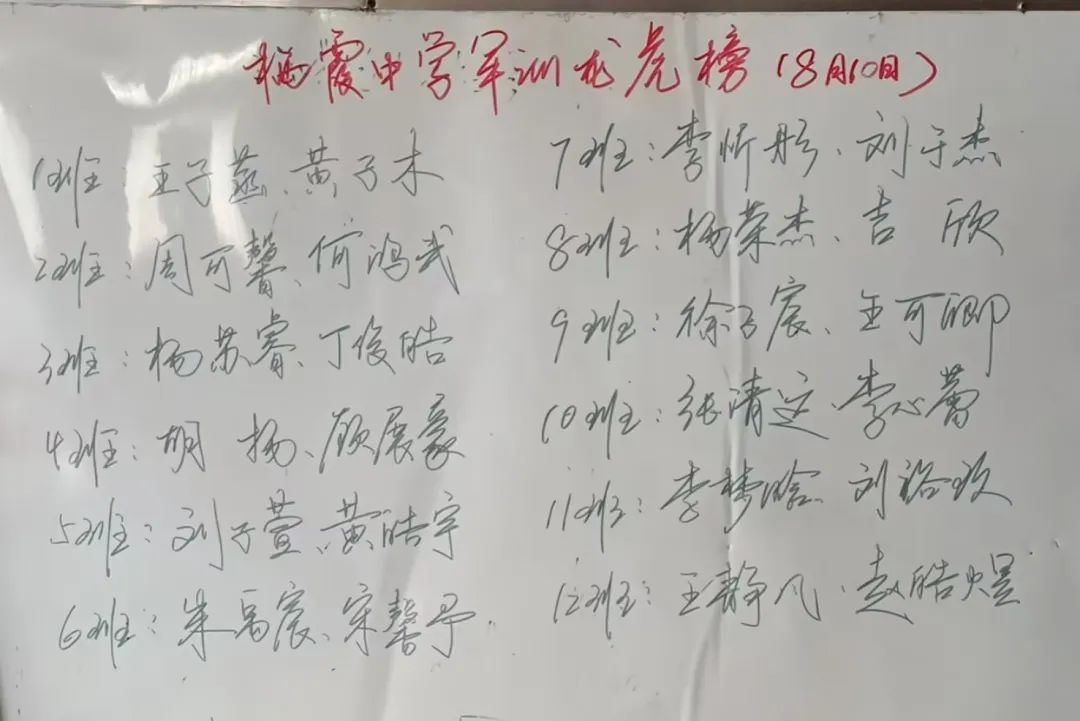 栖霞中学军训龙虎榜(8月10日)
1班：王子菡、黄子木
2班：周可馨、何鸿武
3班：杨苏睿、丁俊皓
4班：胡 杨、顾展豪
5班：刘子萱、黄皓宇
6班：朱禹宸、宋馨予
7班：李忻彤、刘子杰
8班：杨荣杰、吉 欣
9班：徐子宸、王可卿
10班：张清定、李心蕾
11班：李梦晗 刘裕玫
12班：王静凡、赵皓煜